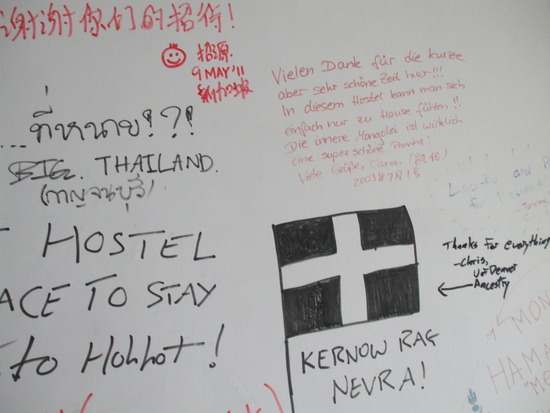 谢谢你们的招待!
9 MAY '11
新加坡
Vielen Dank für die kurze
aber sehr schöne Zeit hier!!!
In diesem Hostel kann man sich
einfach nur zu Hause fühlen!!!
Die innere Mongolei ist wirklich
eine super schöne Provinz!
Viele Grüße,
...ที่หนาย!?!
BIG. THAILAND.
(กาญจนบุรี)
HOSTEL
ACE TO STAY
to Hohhot!
KERNOW RAG
NEVRA!
Thanks for everything
-Chris,
U of Denver
Ancestry